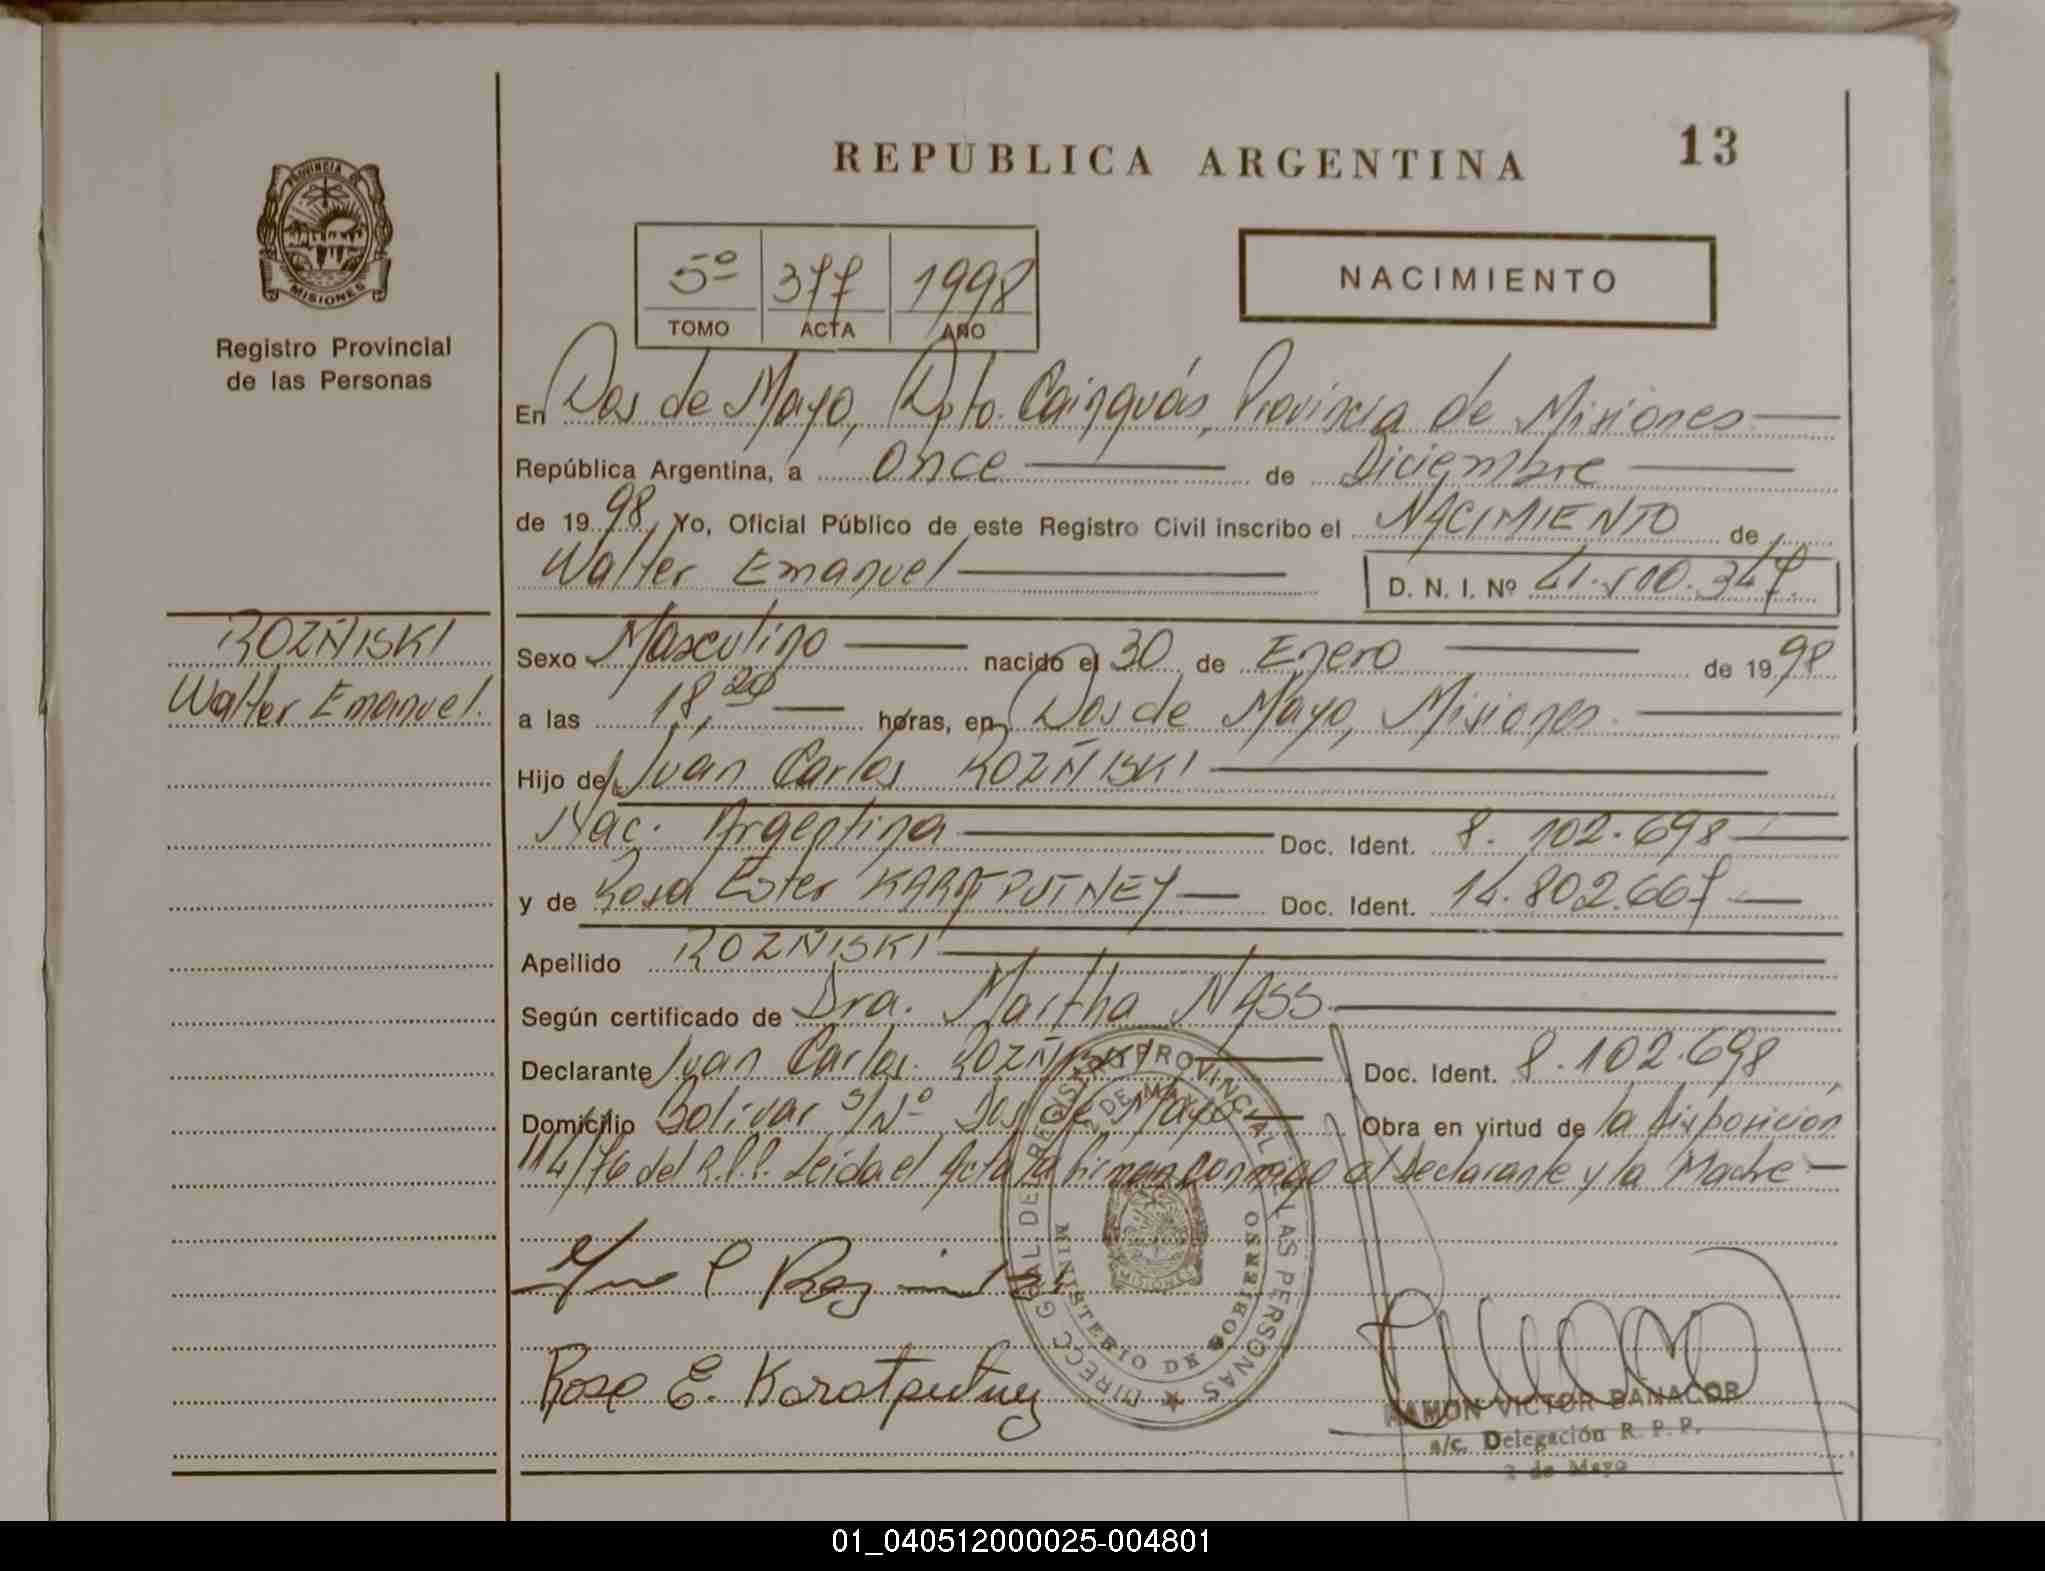 REPUBLICA ARGENTINA
13
PROVINCIA DE
MISIONES
Registro Provincial
de las Personas
5º 377 1998
TOMO ACTA AÑO
NACIMIENTO
En Dos de Mayo, Dpto. Cainguás, Provincia de Misiones
República Argentina, a Once de Diciembre
de 1998, Yo, Oficial Público de este Registro Civil inscribo el NACIMIENTO de
Walter Emanuel D. N. I. Nº 41.500.347.
ROZÑISKI
Walter Emanuel.
Sexo Masculino nacido el 30 de Enero de 1998
a las 18,20 horas, en Dos de Mayo, Misiones.
Hijo de Juan Carlos ROZÑISKI
Nac. Argentina Doc. Ident. 8.102.698
y de Rosa Ester KARATPUTNEY Doc. Ident. 14.802.667
Apellido ROZÑISKI
Según certificado de Dra. Martha NASS
Declarante Juan Carlos ROZÑISKI Doc. Ident. 8.102.698
Domicilio Bolivar S/Nº Dos de Mayo Obra en virtud de la Disposición
114/76 del R.P.P. Leida el Acta la firman conmigo el Declarante y la Madre
DIRECC GRAL DE REGISTRO PROVINCIAL DE LAS PERSONAS
2 DE MAYO
MINISTERIO DE GOBIERNO
MISIONES
Rosa E. Karatputney
RAMON VICTOR BAÑACOR
a/c. Delegación R. P. P.
2 de Mayo
01_040512000025-004801